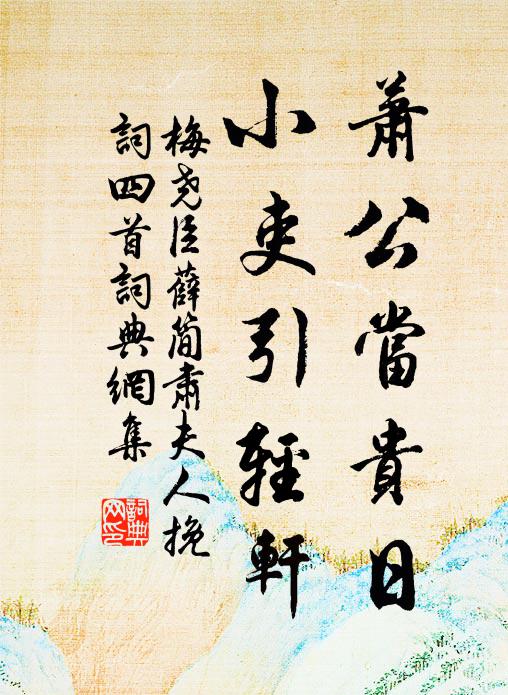 蕭公當貴日
小吏引輕軒
梅尧臣薛簡肅夫人挽
詞四首詞典網集
詞典
网印